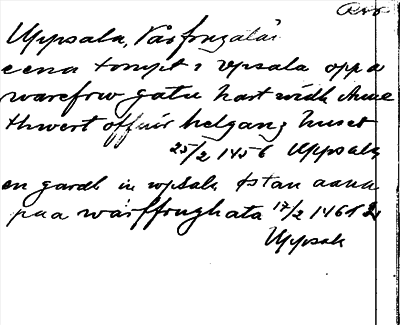 Uppsala, Vårfrugatan
eena tompt i vpsala opp a
warefrw gatu hart widh
thwert offuir helganz huset
25/2 1456 Uppsala
en gardh in wpsala østan aana
paa wårffrughata 17/2 1461
Uppsala